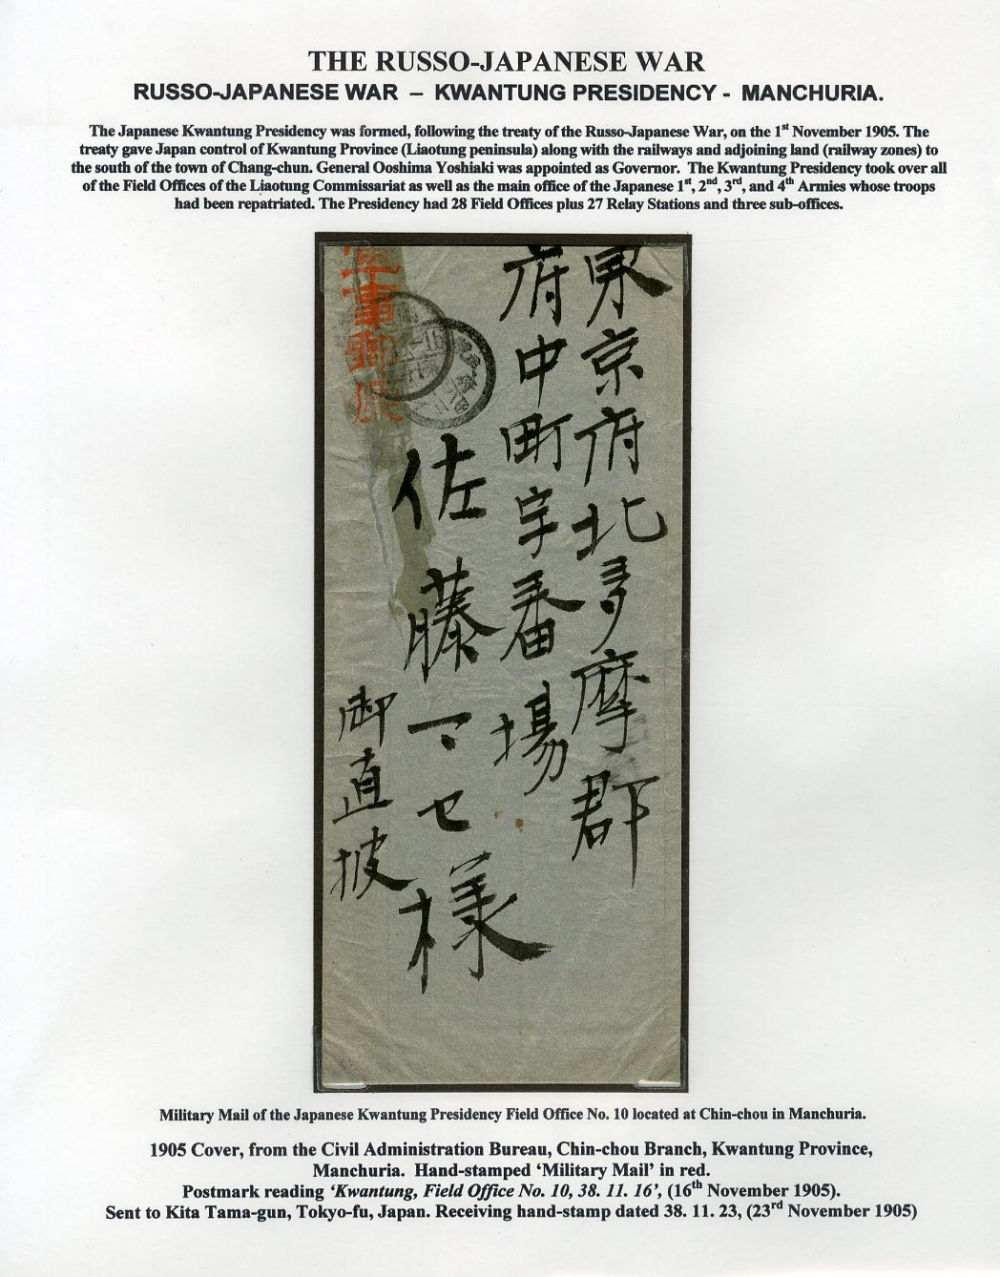 THE RUSSO-JAPANESE WAR
RUSSO-JAPANESE WAR – KWANTUNG PRESIDENCY - MANCHURIA.
The Japanese Kwantung Presidency was formed, following the treaty of the Russo-Japanese War, on the 1st November 1905. The
treaty gave Japan control of Kwantung Province (Liaotung peninsula) along with the railways and adjoining land (railway zones) to
the south of the town of Chang-chun. General Ooshima Yoshiaki was appointed as Governor. The Kwantung Presidency took over all
of the Field Offices of the Liaotung Commissariat as well as the main office of the Japanese 1st, 2nd, 3rd, and 4th Armies whose troops
had been repatriated. The Presidency had 28 Field Offices plus 27 Relay Stations and three sub-offices.
東京府北多摩郡
府中町字番場
佐藤マセ様
御直披
軍事郵便
Military Mail of the Japanese Kwantung Presidency Field Office No. 10 located at Chin-chou in Manchuria.
1905 Cover, from the Civil Administration Bureau, Chin-chou Branch, Kwantung Province,
Manchuria. Hand-stamped ‘Military Mail’ in red.
Postmark reading ‘Kwantung, Field Office No. 10, 38. 11. 16’, (16th November 1905).
Sent to Kita Tama-gun, Tokyo-fu, Japan. Receiving hand-stamp dated 38. 11. 23, (23rd November 1905)